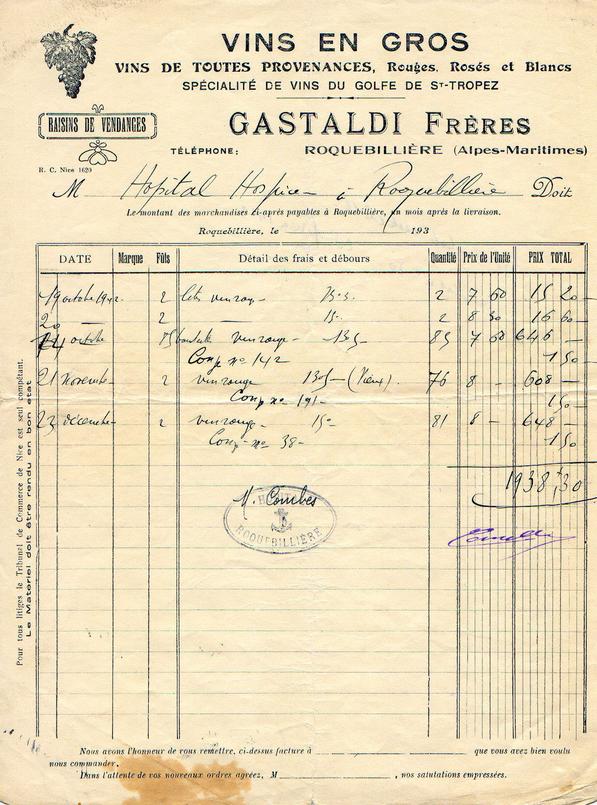 VINS EN GROS
VINS DE TOUTES PROVENANCES, Rouges, Rosés et Blancs
SPÉCIALITÉ DE VINS DU GOLFE DE ST-TROPEZ
RAISINS DE VENDANGES
GASTALDI FRÈRES
TÉLÉPHONE: ROQUEBILLIÈRE (Alpes-Maritimes)
R. C. Nice 1620
M Hopital Hospice à Roquebillière Doit
Le montant des marchandises ci-après payables à Roquebillière, un mois après la livraison.
Roquebillière, le 193
DATE Marque Fûts Détail des frais et débours Quantité Prix de l'Unité PRIX TOTAL
19 octobre 2 2 7 60 15 20
20 — 2 — 2 8 30 16 60
octobre vin rouge 13°5 85 7 60 646 —
Cong n° 142 1 50
21 Novembre 2 vin rouge (Vieux). 76 8 — 608 —
Cong n° 191 1 50
23 décembre 2 vin rouge 15° 81 8 — 648 —
Cong n° 38 1 50
1938,30
M. Combes
HOSPICE
ROQUEBILLIÈRE
Pour tous litiges le Tribunal de Commerce de Nice est seul compétant.
Le Matériel doit être rendu en bon état
Nous avons l'honneur de vous remettre, ci-dessus facture à que vous avez bien voulu
nous commander.
Dans l'attente de vos nouveaux ordres agréez, M , nos salutations empressées.